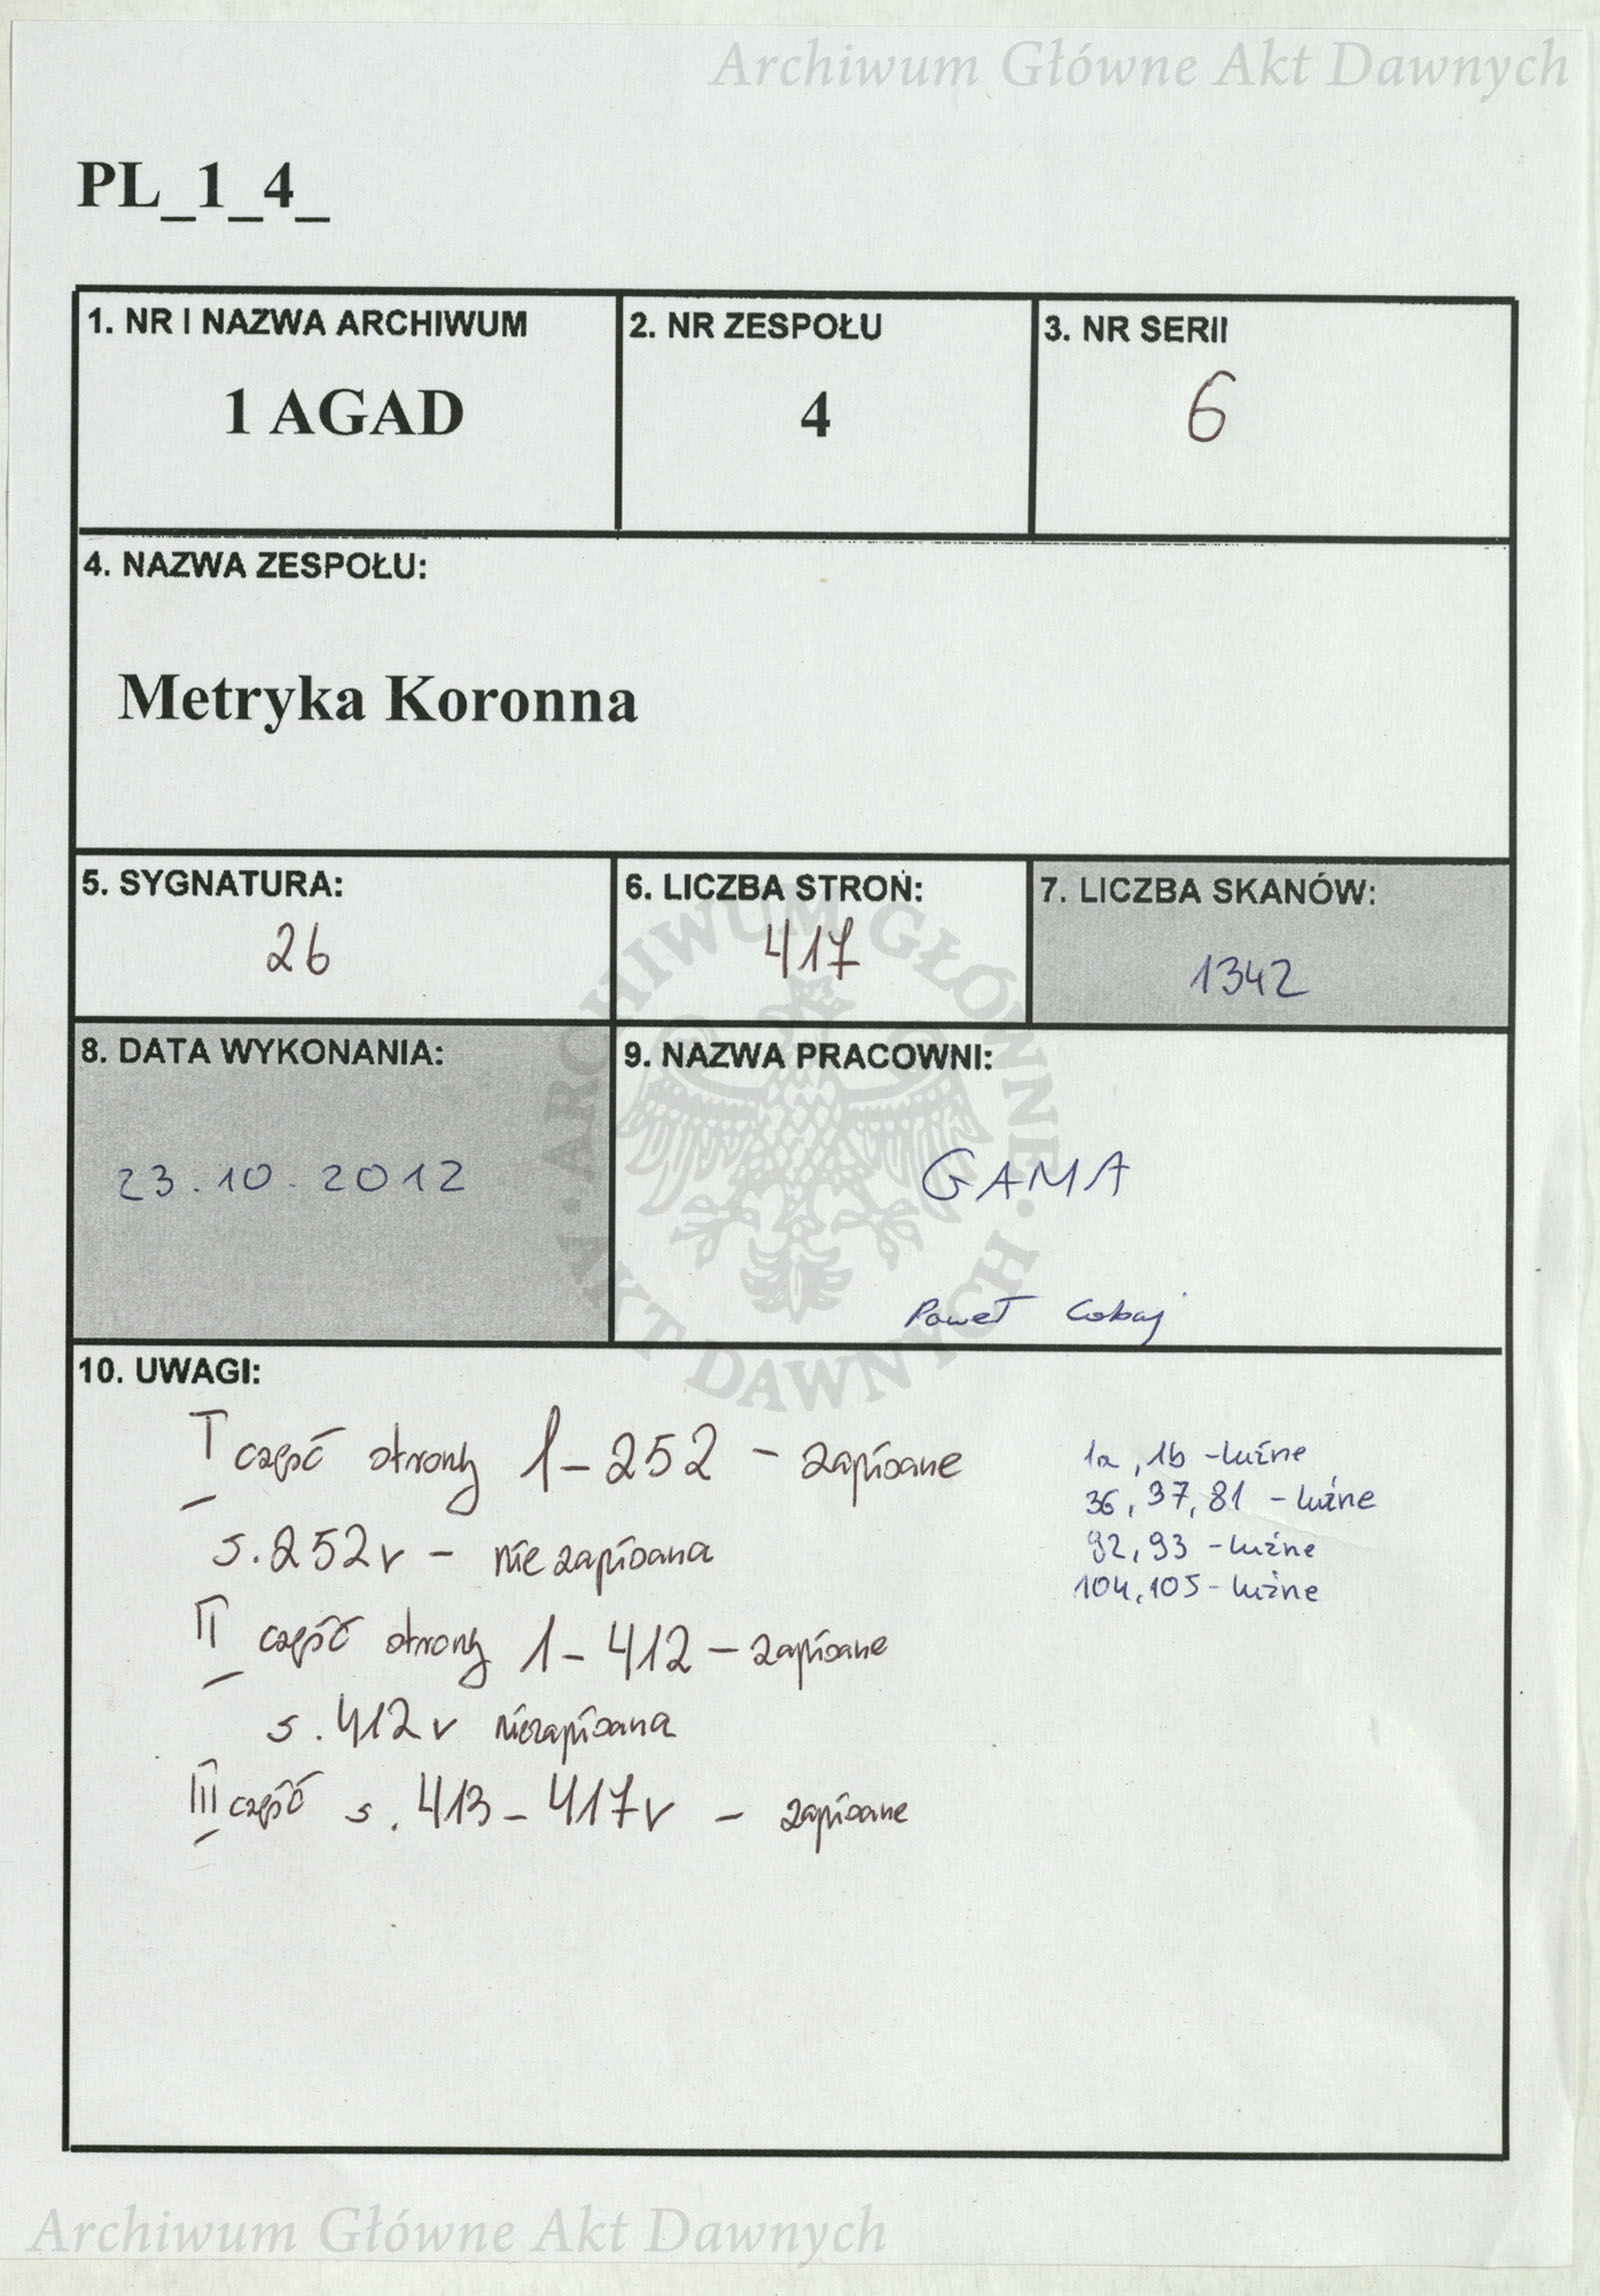 Archiwum Główne Akt Dawnych
PL_1_4_
1. NR I NAZWA ARCHIWUM
1 AGAD
2. NR ZESPOŁU
4
3. NR SERII
6
4. NAZWA ZESPOŁU:
Metryka Koronna
5. SYGNATURA:
26
6. LICZBA STRON:
417
7. LICZBA SKANÓW:
1342
8. DATA WYKONANIA:
23.10.2012
9. NAZWA PRACOWNI:
GAMA
Paweł
ARCHIWUM GŁÓWNE AKT DAWNYCH
10. UWAGI:
I część strony 1-252 - zapisane
s.252v - nie zapisana
II część strony 1-412 - zapisane
s.412v niezapisana
III część s. 413-417v - zapisane
1a, 1b - luźne
36, 37, 81 - luźne
92, 93 - luźne
104, 105 - luźne
Archiwum Główne Akt Dawnych